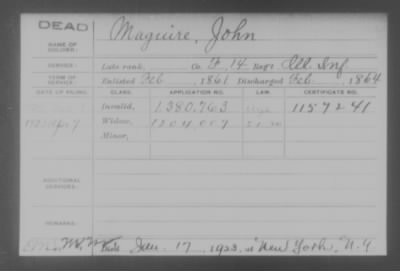 DEAD
NAME OF SOLDIER: Maguire, John
SERVICE: Late rank, Co. F, 14 Reg't Ill. Inf.
TERM OF SERVICE: Enlisted Feb 1861 Discharged Feb 1864
DATE OF FILING. CLASS. APPLICATION NO. LAW. CERTIFICATE NO.
Invalid, 1.380.763 1157241
1923 Widow, 1204.007
Minor,
ADDITIONAL SERVICES:
REMARKS:
Died Jan. 17, 1923, at New York, N.Y